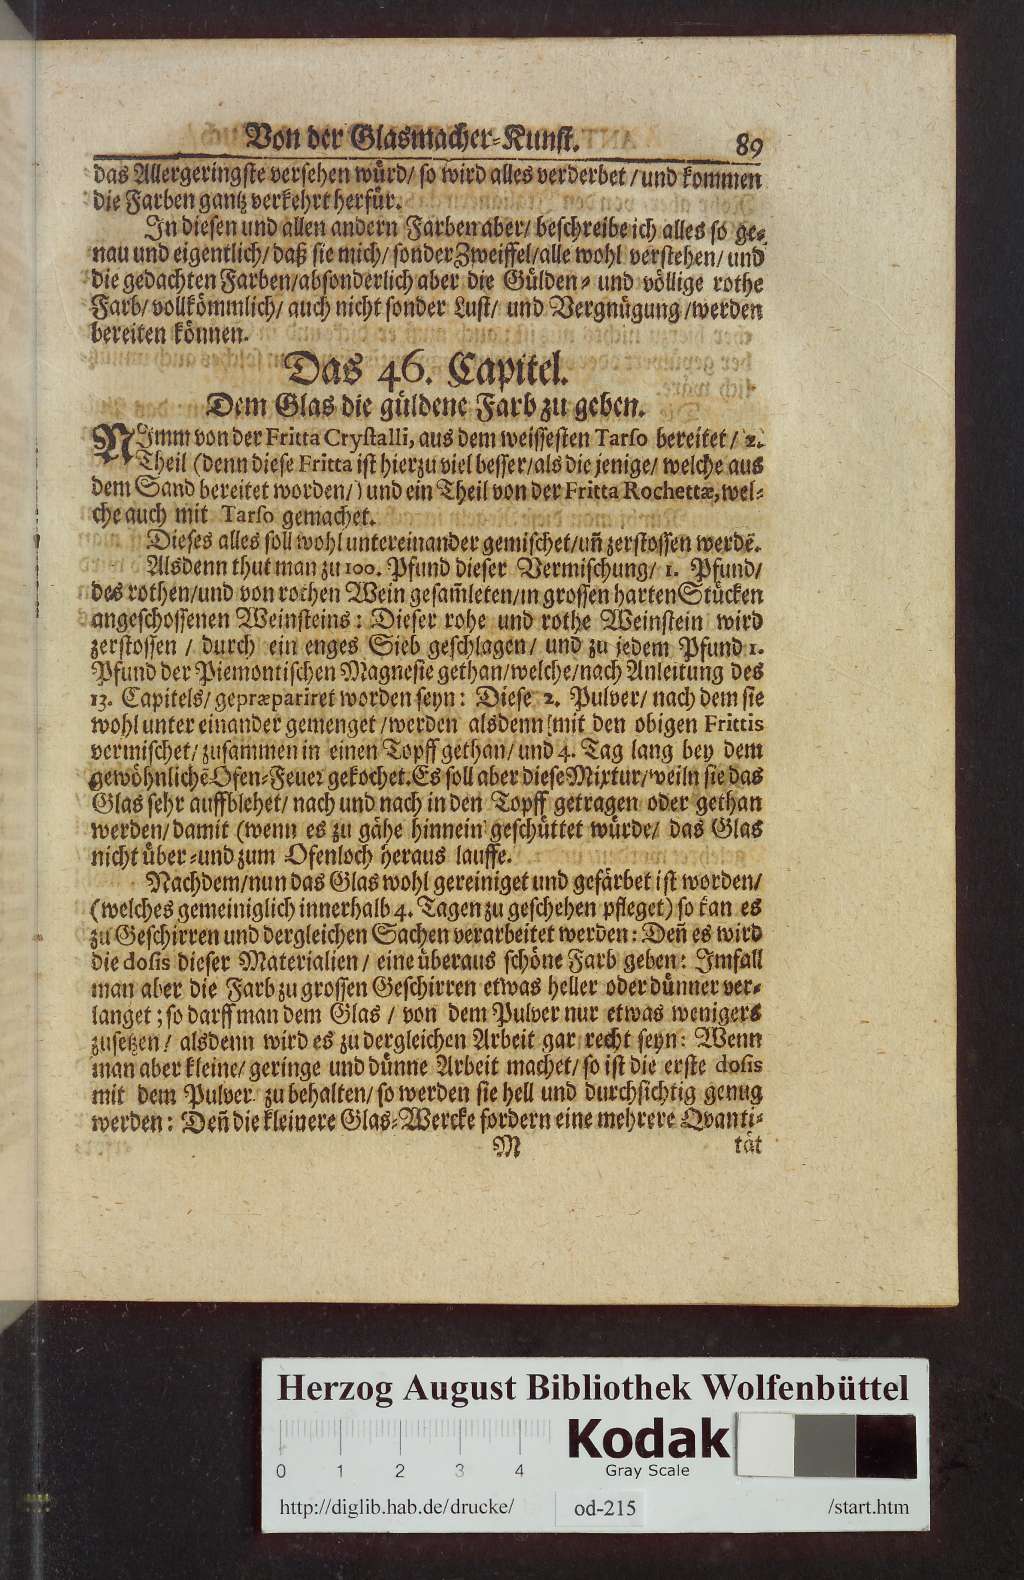 Von der Glasmacher-Kunst. 89
das Allergeringste versehen würd/ so wird alles verderbet / und kommen
die Farben gantz verkehrt herfür.
In diesen und allen andern Farben aber/ beschreibe ich alles so ge-
nau und eigentlich/ daß sie mich/ sonder Zweiffel/ alle wohl verstehen/ und
die gedachten Farben/ absonderlich aber die Gülden- und völlige rothe
Farb/ vollkömmlich/ auch nicht sonder Lust/ und Vergnügung /werden
bereiten können.
Das 46. Capitel.
Dem Glas die güldene Farb zu geben.
NImm von der Fritta Crystalli, aus dem weissesten Tarso bereitet / 2.
Theil (denn diese Fritta ist hierzu viel besser/als die jenige/ welche aus
dem Sand bereitet worden/) und ein Theil von der Fritta Rochettæ, wel-
che auch mit Tarso gemachet.
Dieses alles soll wohl untereinander gemischet/ uñ zerstossen werdē.
Alsdenn thut man zu 100. Pfund dieser Vermischung/ 1. Pfund/
des rothen/und von rothen Wein gesam̃leten/in grossen harten Stücken
angeschossenen Weinsteins: Dieser rohe und rothe Weinstein wird
zerstossen / durch ein enges Sieb geschlagen/ und zu jedem Pfund 1.
Pfund der Piemontischen Magnesie gethan/welche/nach Anleitung des
13. Capitels/ gepræpariret worden seyn: Diese 2. Pulver/ nach dem sie
wohl unter einander gemenget /werden alsdenn mit den obigen Frittis
vermischet/ zusammen in einen Topff gethan/ und 4. Tag lang bey dem
gewöhnlichē Ofen-Feuer gekochet. Es soll aber diese Mixtur/ weiln sie das
Glas sehr auffblehet/ nach und nach in den Topff getragen oder gethan
werden/ damit (wenn es zu gähe hinnein geschüttet würde/ das Glas
nicht über-und zum Ofenloch heraus lauffe.
Nachdem/nun das Glas wohl gereiniget und gefärbet ist worden/
(welches gemeiniglich innerhalb 4. Tagen zu geschehen pfleget) so kan es
zu Geschirren und dergleichen Sachen verarbeitet werden: Deñ es wird
die dosis dieser Materialien / eine überaus schöne Farb geben: Imfall
man aber die Farb zu grossen Geschirren etwas heller oder dünner ver-
langet ; so darff man dem Glas / von dem Pulver nur etwas wenigers
zusetzen/ alsdenn wird es zu dergleichen Arbeit gar recht seyn: Wenn
man aber kleine/ geringe und dünne Arbeit machet/ so ist die erste dosis
mit dem Pulver zu behalten/ so werden sie hell und durchsichtig genug
werden: Deñ die kleinere Glas-Wercke fordern eine mehrere Qvanti-
M tät
Herzog August Bibliothek Wolfenbüttel
0 1 2 3 4
Kodak
Gray Scale
http://diglib.hab.de/drucke/ od-215 /start.htm